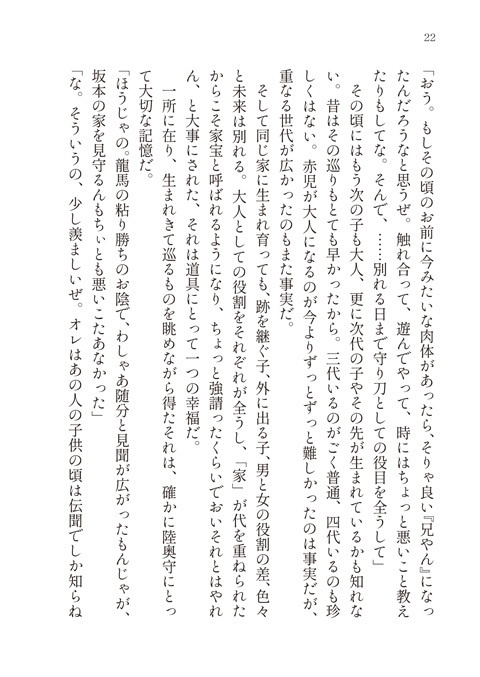 22
「おう。もしその頃のお前に今みたいな肉体があったら、そりゃ良い『兄やん』になっ
たんだろうなと思うぜ。触れ合って、遊んでやって、時にはちょっと悪いこと教え
たりもしてな。そんで、……別れる日まで守り刀としての役目を全うして」
その頃にはもう次の子も大人、更に次代の子やその先が生まれているかも知れな
い。昔はその巡りもとても早かったから。三代いるのがごく普通、四代いるのも珍
しくはない。赤児が大人になるのが今よりずっとずっと難しかったのは事実だが、
重なる世代が広かったのもまた事実だ。
そして同じ家に生まれ育っても、跡を継ぐ子、外に出る子、男と女の役割の差、色々
と未来は別れる。大人としての役割をそれぞれが全うし、「家」が代を重ねられた
からこそ家宝と呼ばれるようになり、ちょっと強請ったくらいでおいそれとはやれ
ん、と大事にされた、それは道具にとって一つの幸福だ。
一所に在り、生まれきて巡るものを眺めながら得たそれは、確かに陸奥守にとっ
て大切な記憶だ。
「ほうじゃの。龍馬の粘り勝ちのお陰で、わしゃあ随分と見聞が広がったもんじゃが、
坂本の家を見守るんもちぃとも悪いこたあなかった」
「な。そういうの、少し羨ましいぜ。オレはあの人の子供の頃は伝聞でしか知らね